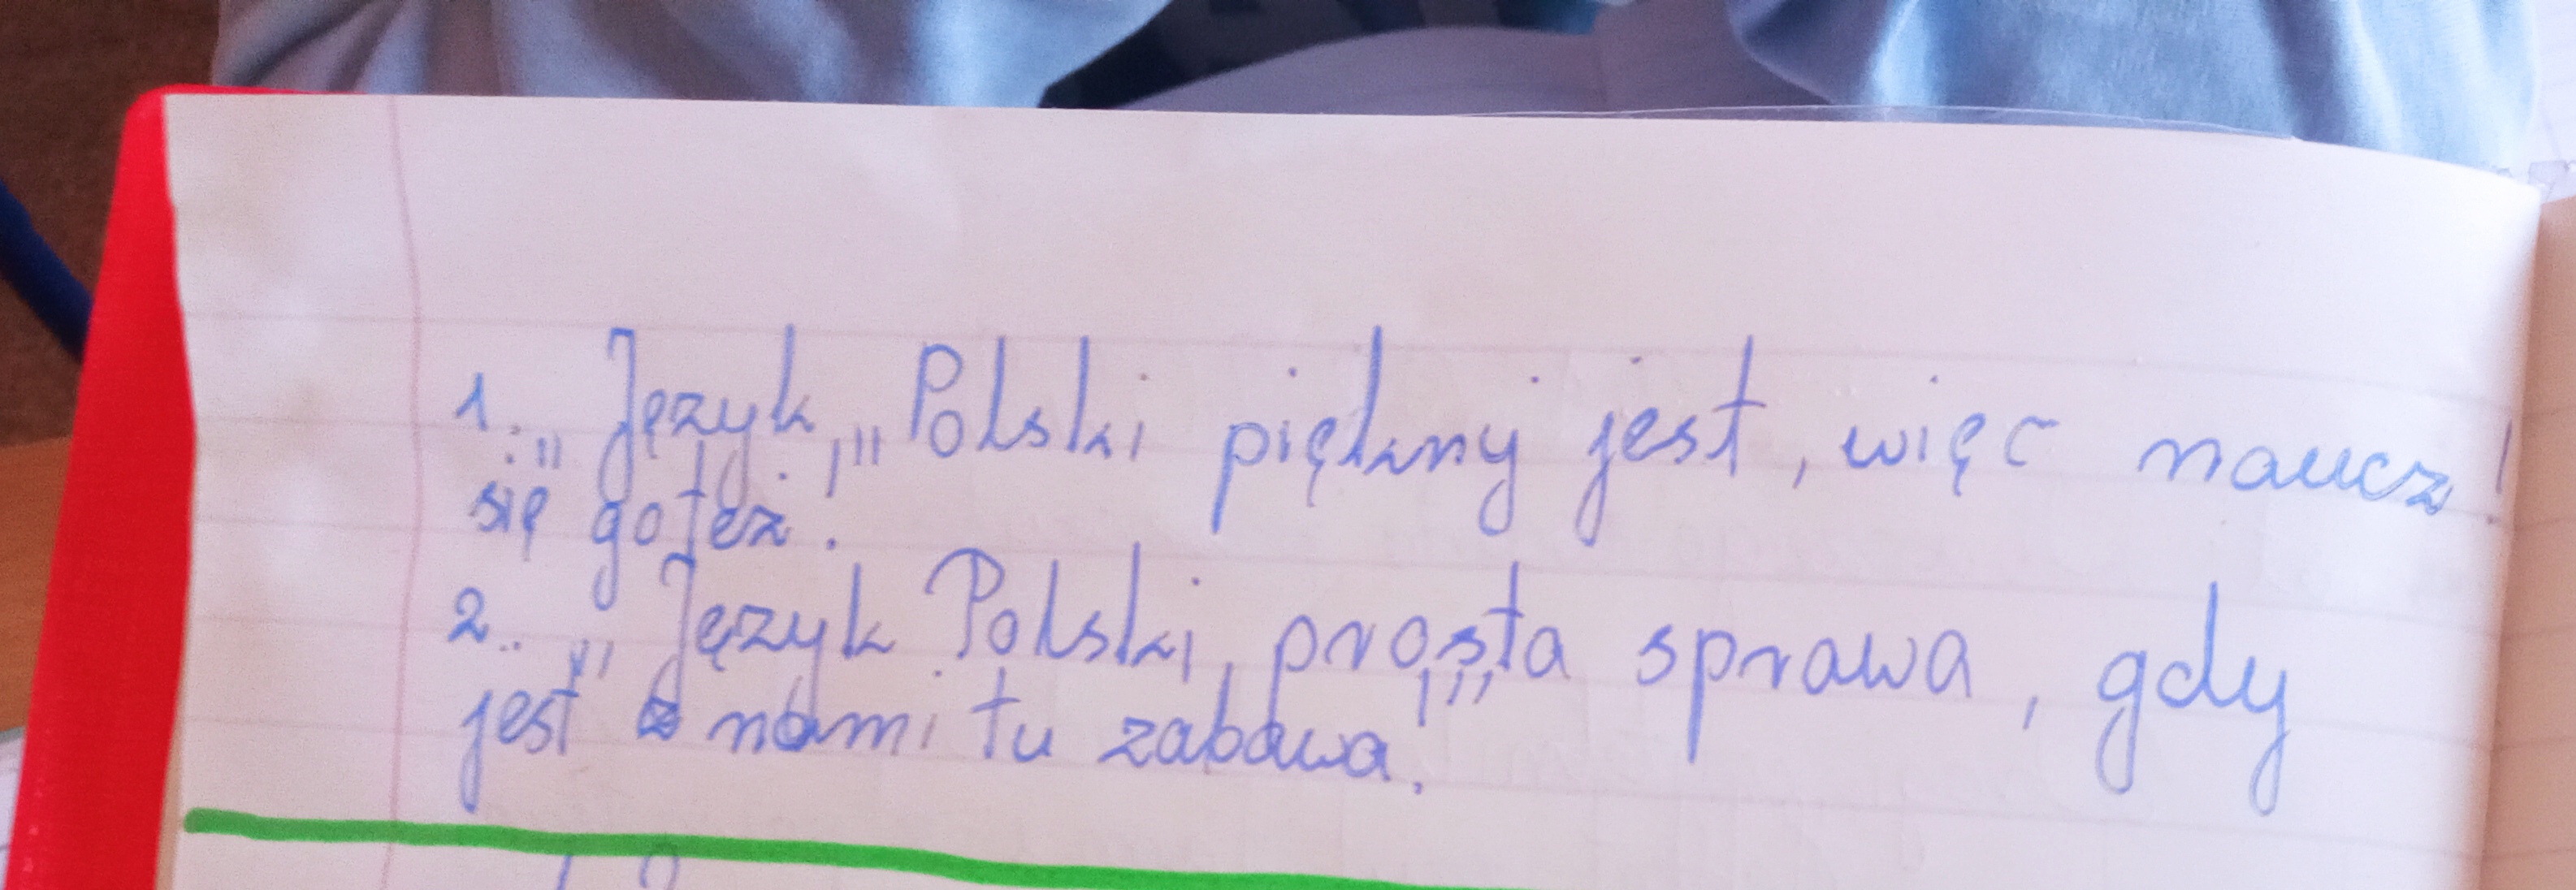 1. „Język Polski piękny jest, więc naucz
się go też!"
2. „Język Polski, prosta sprawa, gdy
jest z nami tu zabawa!"